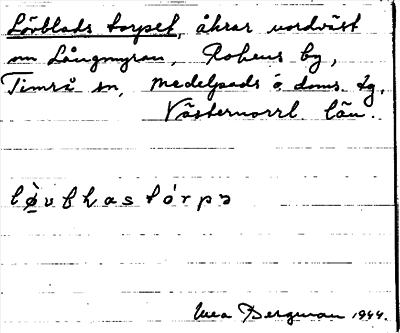 Lövblads torpet, åkrar nordväst
om Långmyran, Rohens by,
Timrå sn, Medelpads ö doms. tg.
Västernorrl län.
Bergman 1944.